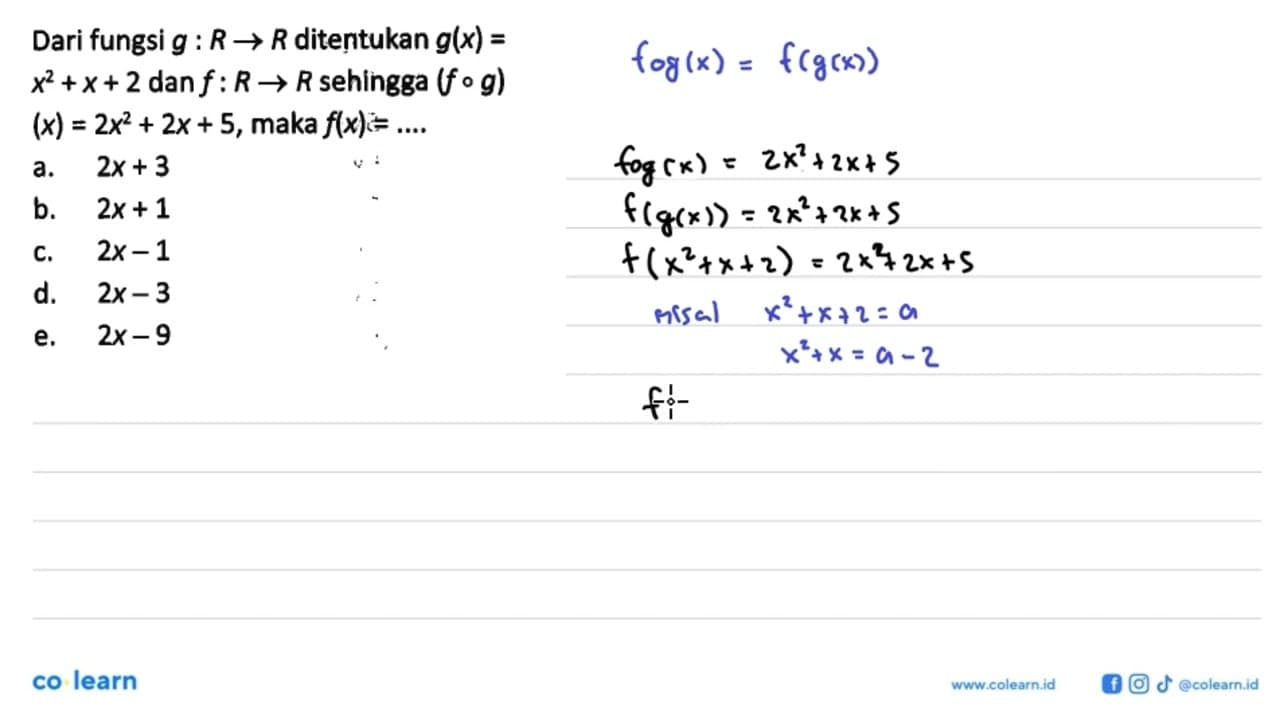 Dari fungsi g : R → R ditentukan g(x) =
x² + x + 2 dan f : R → R sehingga (f ∘ g)
(x) = 2x² + 2x + 5, maka f(x) = ....
a. 2x + 3
b. 2x + 1
c. 2x – 1
d. 2x – 3
e. 2x – 9
fog(x) = f(g(x))
fog(x) = 2x² + 2x + 5
f(g(x)) = 2x² + 2x + 5
f(x² + x + 2) = 2x² + 2x + 5
misal x² + x + 2 = a
x² + x = a – 2
f
co learn
www.colearn.id
@colearn.id